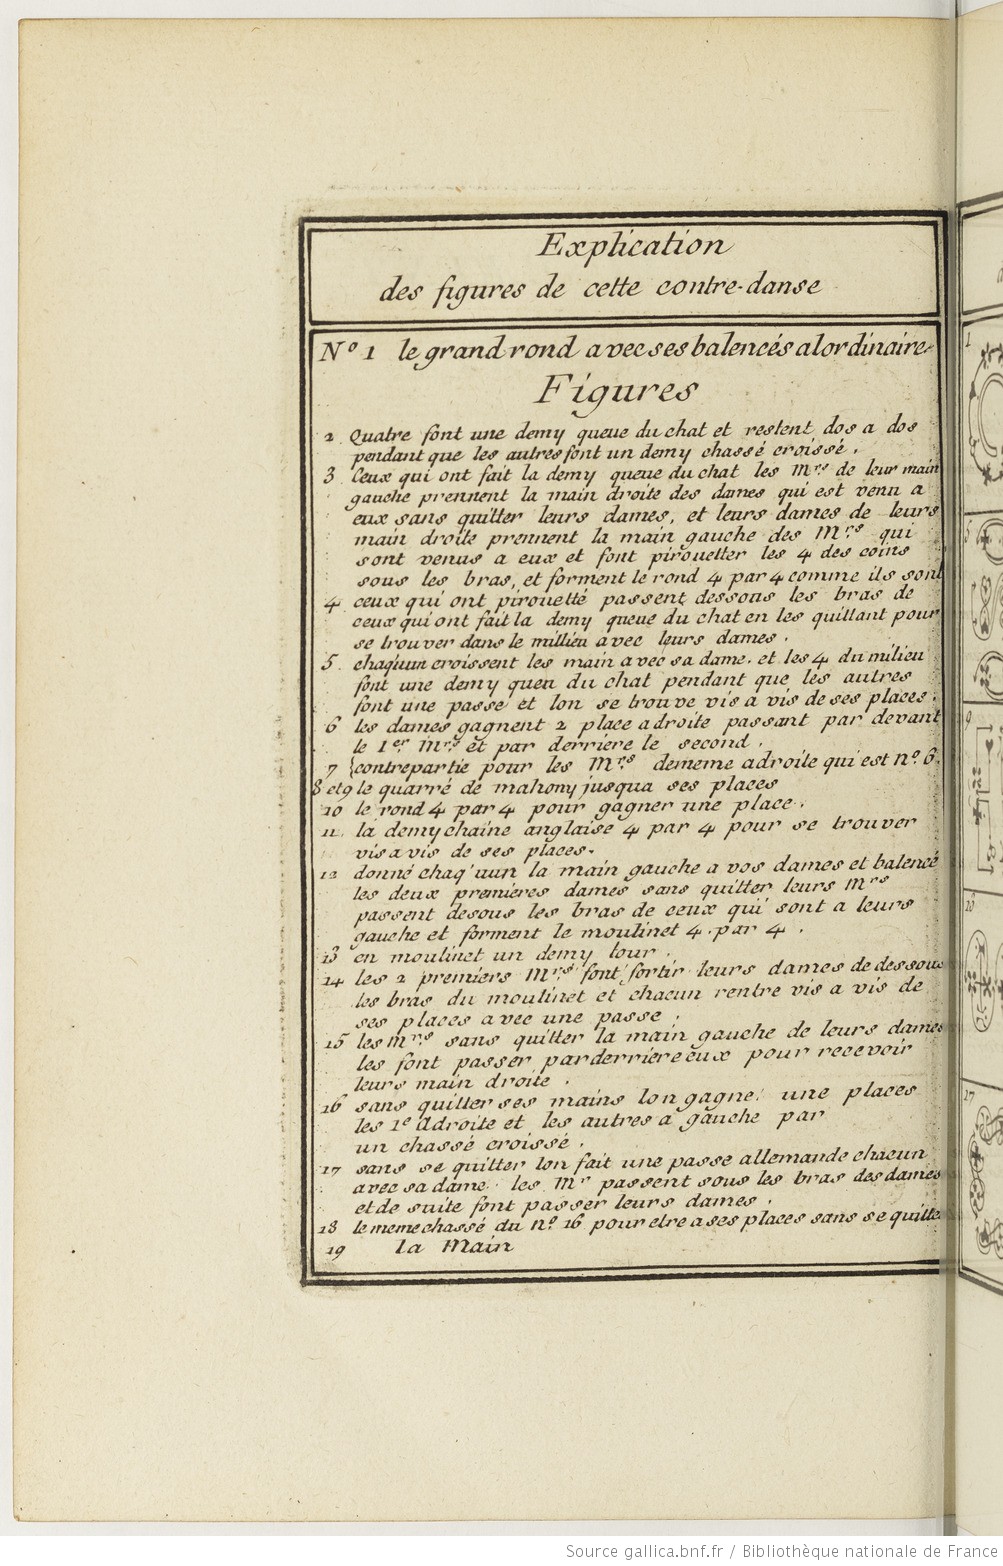 Explication
des figures de cette contre-danse
Nº 1 le grand rond avec ses balencés alordinaire
Figures
2. Quatre font une demy queue du chat et restent dos a dos
pendant que les autres font un demy chassé croissé.
3 Ceux qui ont fait la demy queue du chat les Mrs de leur main
gauche prennent la main droite des dames qui est venu a
eux sans quitter leurs dames, et leurs dames de leurs
main droite prennent la main gauche des Mrs qui
sont venus a eux et font pirouetter les 4 des coins
sous les bras, et forment le rond 4 par 4 comme ils sont
4. ceux qui ont pirouetté passent dessous les bras de
ceux qui ont fait la demy queue du chat en les quittant pour
se trouver dans le millieu avec leurs dames.
5. chaq'uun croissent les main avec sa dame. et les 4 du milieu
font une demy queu du chat pendant que les autres
font une passe et lon se trouve vis a vis de ses places.
6 les dames gagnent 2 place adroite passant par devant
le 1er Mrs et par derriere le second.
7 contrepartie pour les Mrs dememe adroite qui est nº 6.
8 et 9 le quarré de mahony jusqua ses places
10 le rond 4 par 4 pour gagner une place.
11. la demy chaine anglaise 4 par 4 pour se trouver
vis a vis de ses places.
12 donné chaq'uun la main gauche a vos dames et balencé
les deux premieres dames sans quitter leurs Mrs
passent desous les bras de ceux qui sont a leurs
gauche et forment le moulinet 4. par 4.
13 en moulinet un demy tour.
14 les 2 premiers Mrs font sortir leurs dames de dessous
les bras du moulinet et chacun rentre vis a vis de
ses places avec une passe.
15 les Mrs sans quitter la main gauche de leurs dames
les font passer par derriere eux pour recevoir
leurs main droite.
16 sans quitter ses mains lon gagne une places
les 1e adroite et les autres a gauche par
un chassé croissé.
17 sans se quitter lon fait une passe allemande chacun
avec sa dame. les Mr passent sous les bras des dames
et de suite font passer leurs dames.
18 le meme chassé du nº 16 pour etre a ses places sans se quitter
19 la Main
1
5
9
13
17
Source gallica.bnf.fr / Bibliothèque nationale de France